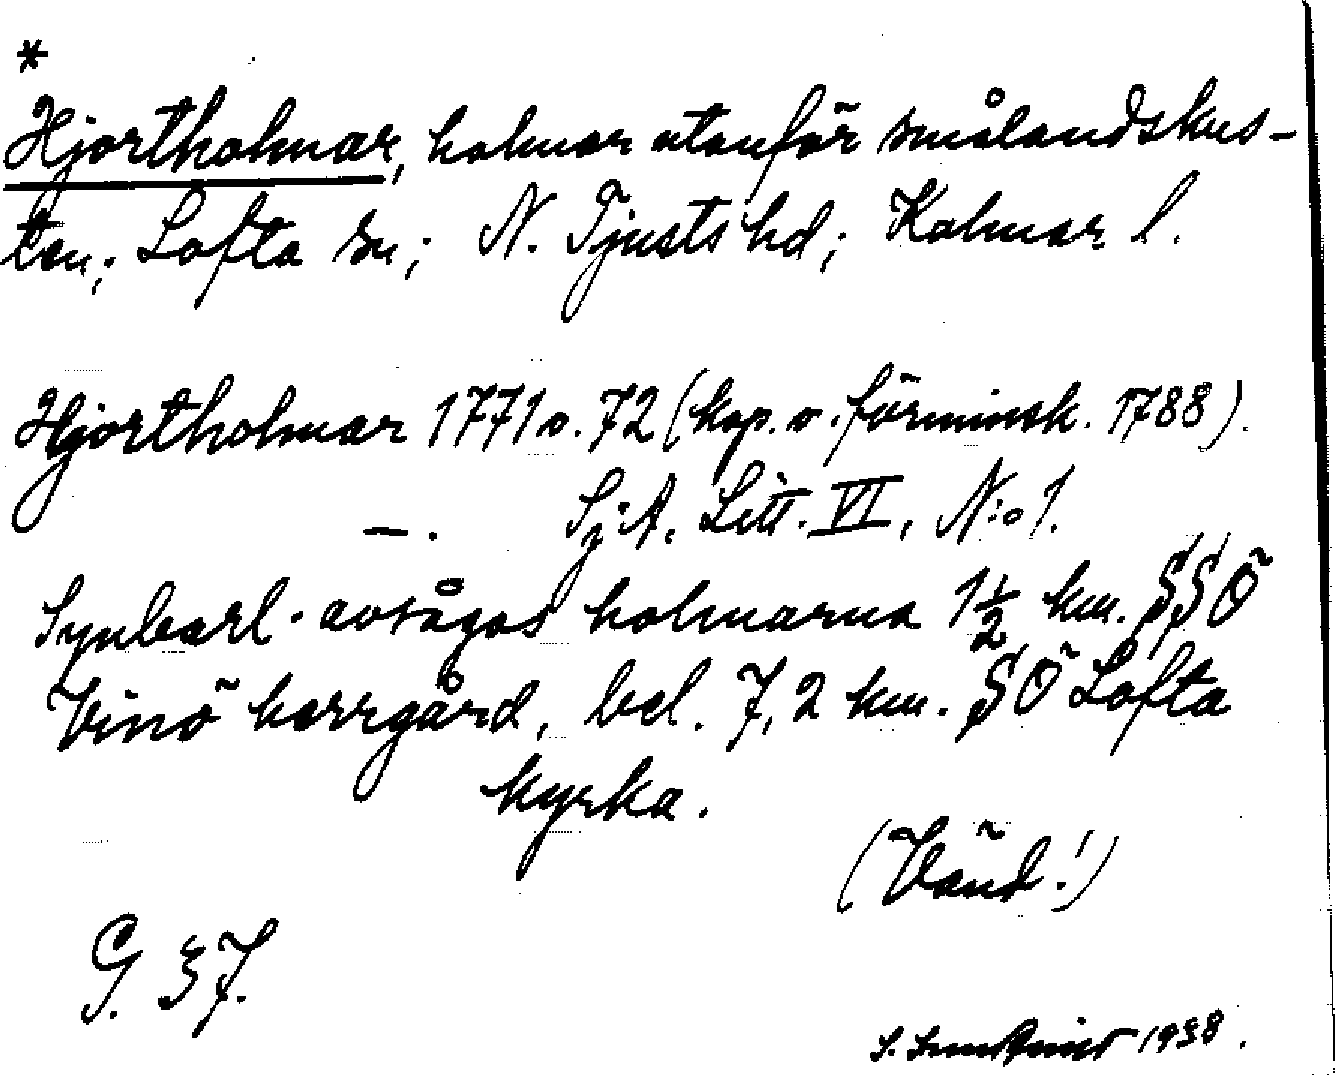 *
Hjortholmar, holmar utanför smålandskus-
ten; Lofta sn; N. Tjusts hd; Kalmar l.
Hjortholmar 1771 o. 72 (kop. o. förminsk. 1788).
—. Sj.A. Litt. VI, N:o 1.
Synbarl. avsågos holmarna 1½ km. SSÖ
Vinö herrgård, bel. 7,2 km. SÖ Lofta
kyrka.
(Vänd!)
G. 37.
S. 1938.